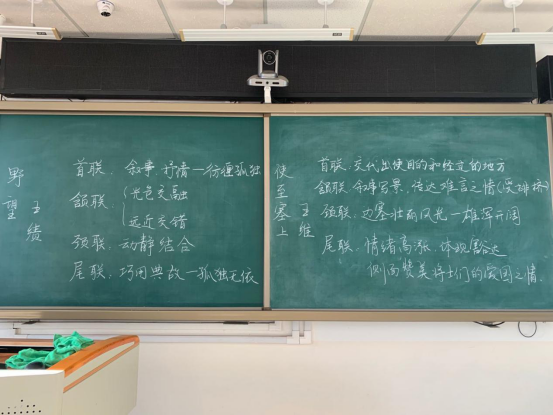 野望
王绩
首联：叙事抒情—彷徨孤独
颔联：光色交融
远近交错
颈联：动静结合
尾联：巧用典故—孤独无依
使至塞上
王维
首联：交代出使目的和经过的地方
颔联：叙事写景，传达难言之情(受排挤)
颈联：边塞壮丽风光—雄浑开阔
尾联：情绪高涨，体现豁达
侧面赞美将士们的爱国之情。